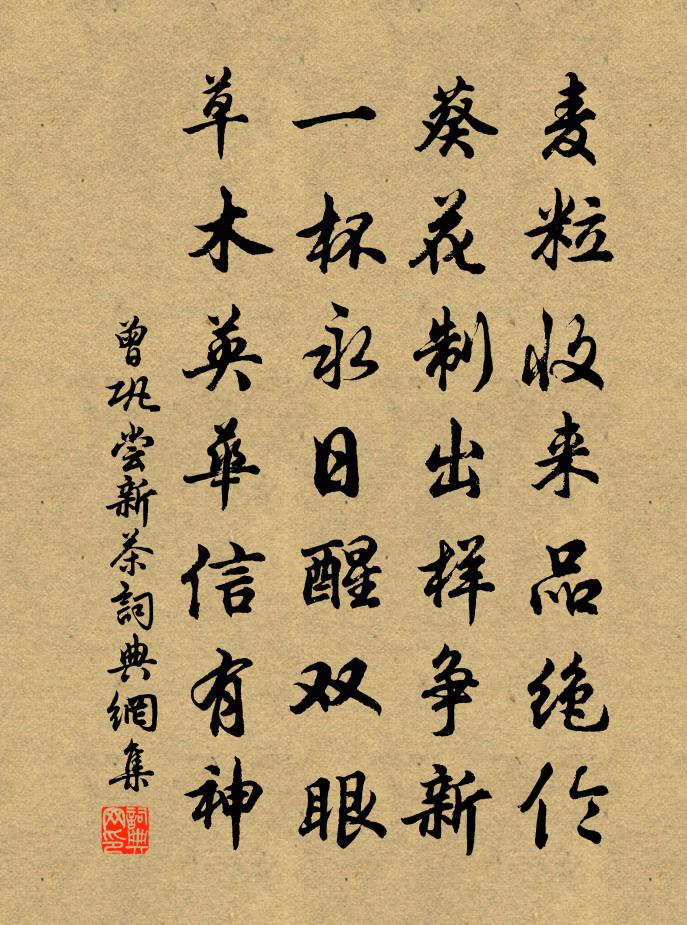 麦粒收来品绝伦
葵花制出样争新
一杯永日醒双眼
草木英华信有神
曾巩尝新茶詞典網集
詞典网印